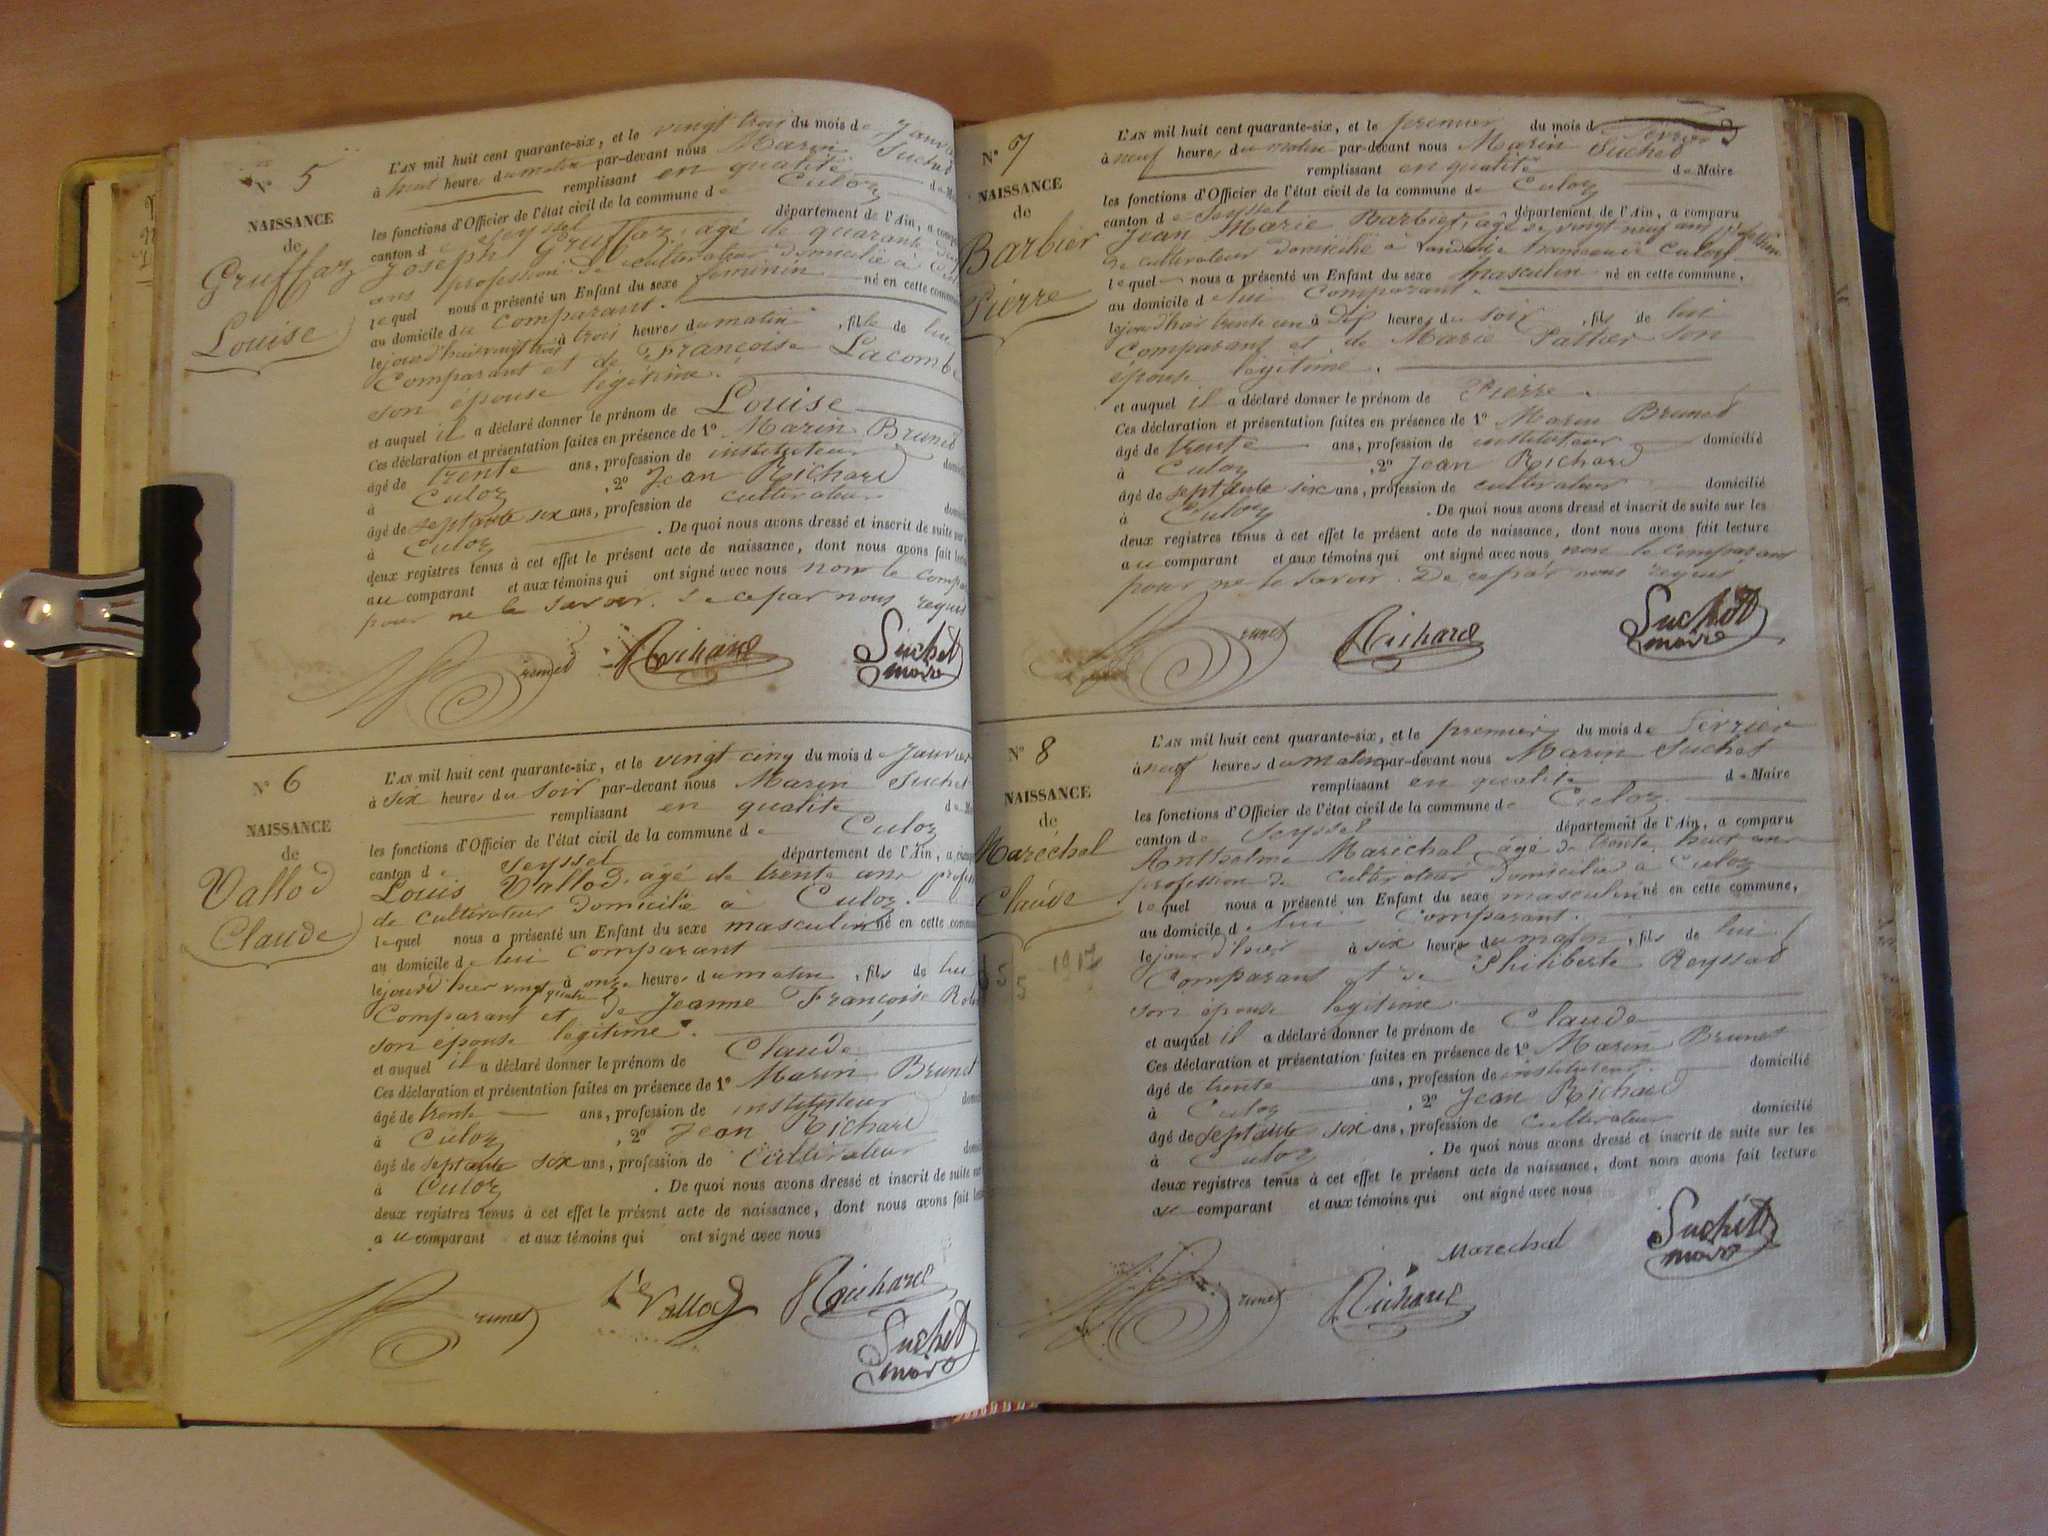 N° 5
NAISSANCE
de
Gruffaz
Louise
L'AN mil huit cent quarante-six, et le vingt trois du mois de Janv
à huit heures du matin par-devant nous Marin Suchet
remplissant en qualité de M
les fonctions d'Officier de l'état civil de la commune de Culoz
canton de Seyssel département de l'Ain, a comp
Joseph Gruffaz, agé de quarante
ans profession de cultivateur domicilié à Cul
lequel nous a présenté un Enfant du sexe féminin né en cette commune
au domicile du comparant.
le jourd'hui vingt trois à trois heures du matin, fille de lui
Comparant et de Françoise Lacombe
son épouse légitime.
et auquel il a déclaré donner le prénom de Louise
Ces déclaration et présentation faites en présence de 1° Marin Brunet
âgé de trente ans, profession de instituteur domicil
à Culoz, 2° Jean Richard
âgé de septante six ans, profession de cultivateur domi
à Culoz. De quoi nous avons dressé et inscrit de suite sur
deux registres tenus à cet effet le présent acte de naissance, dont nous avons fait lectu
au comparant et aux témoins qui ont signé avec nous non le compa
pour ne le savoir. De ce par nous requis
Brunet Richard Suchet
maire
N° 6
NAISSANCE
de
Vallod
Claude
L'AN mil huit cent quarante-six, et le vingt cinq du mois de Janvier
à six heures du soir par-devant nous Marin Suchet
remplissant en qualité de M
les fonctions d'Officier de l'état civil de la commune de Culoz
canton de Seyssel département de l'Ain, a comp
Louis Vallod, agé de trente ans profes
de cultivateur domicilié à Culoz.
lequel nous a présenté un Enfant du sexe masculin né en cette commun
au domicile de lui comparant
le jour d'hier vingt quatre à onze heures du matin, fils de lui
Comparant et de Jeanne Françoise
son épouse légitime.
et auquel il a déclaré donner le prénom de Claude
Ces déclaration et présentation faites en présence de 1° Marin Brunet
âgé de trente ans, profession de instituteur domici
à Culoz, 2° Jean Richard
âgé de septante six ans, profession de Cultivateur domi
à Culoz. De quoi nous avons dressé et inscrit de suite sur
deux registres tenus à cet effet le présent acte de naissance, dont nous avons fait lect
au comparant et aux témoins qui ont signé avec nous
Brunet Vallod Richard
Suchet
maire
N° 7
NAISSANCE
de
Barbier
Pierre
L'AN mil huit cent quarante-six, et le premier du mois de Fevrier
à neuf heures du matin par-devant nous Marin Suchet
remplissant en qualité de Maire
les fonctions d'Officier de l'état civil de la commune de Culoz
canton de Seyssel département de l'Ain, a comparu
Jean Marie Barbier, agé de vingt neuf ans profession
de cultivateur domicilié à Landaize hameau de Culoz
lequel nous a présenté un Enfant du sexe masculin né en cette commune,
au domicile de lui Comparant.
le jour d'hier trente un à Dix heures du soir, fils de lui
Comparant et de Marie Pattier son
épouse légitime.
et auquel il a déclaré donner le prénom de Pierre.
Ces déclaration et présentation faites en présence de 1° Marin Brunet
âgé de trente ans, profession de instituteur domicilié
à Culoz, 2° Jean Richard
âgé de septante six ans, profession de cultivateur domicilié
à Culoz. De quoi nous avons dressé et inscrit de suite sur les
deux registres tenus à cet effet le présent acte de naissance, dont nous avons fait lecture
au comparant et aux témoins qui ont signé avec nous non le comparant
pour ne le savoir. De ce par nous requis
Brunet Richard Suchet
maire
N° 8
NAISSANCE
de
Maréchal
Claude
1917
L'AN mil huit cent quarante-six, et le premier du mois de Fevrier
à neuf heures du matin par-devant nous Marin Suchet
remplissant en qualité de Maire
les fonctions d'Officier de l'état civil de la commune de Culoz
canton de Seyssel département de l'Ain, a comparu
Anthelme Maréchal, agé de trente huit ans
profession de cultivateur domicilié à Culoz
lequel nous a présenté un Enfant du sexe masculin né en cette commune,
au domicile de lui Comparant.
le jour d'hier à six heures du matin, fils de lui
Comparant et de Philiberte Reyssat
son épouse légitime.
et auquel il a déclaré donner le prénom de Claude
Ces déclaration et présentation faites en présence de 1° Marin Brunet
âgé de trente ans, profession de instituteur. domicilié
à Culoz, 2° Jean Richard
âgé de septante six ans, profession de Cultivateur domicilié
à Culoz. De quoi nous avons dressé et inscrit de suite sur les
deux registres tenus à cet effet le présent acte de naissance, dont nous avons fait lecture
au comparant et aux témoins qui ont signé avec nous
Marechal Suchet
maire
Brunet Richard